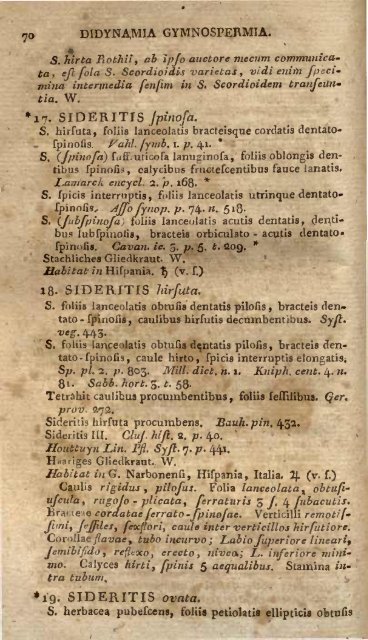 70 DIDYNAMIA GYMNOSPERMIA.
S. hirta Rothii, ab ipſo auctore mecum communica-
ta, eſt ſola S. Scordioidis varietas, vidi enim ſpeci-
mina intermedia ſenſim in S. Scordioidem tranſeun-
tia. W.
*17. SIDERITIS ſpinoſa.
S. hirſuta, foliis lanceolatis bracteisque cordatis dentato-
ſpinoſis. Vahl. ſymb. 1. p. 41. *
S. (ſpinoſa) ſuffruticoſa lanuginoſa, foliis oblongis den-
tibus ſpinoſis, calycibus fructeſcentibus fauce lanatis.
Lamarck encycl. 2. p. 168. *
S. ſpicis interruptis, foliis lanceolatis utrinque dentato-
ſpinoſis. Aſſo ſynop. p. 74. n. 518.
S. (ſubſpinoſa) foliis lanceolatis acutis dentatis, denti-
bus ſubſpinoſis, bracteis orbiculato-acutis dentato-
ſpinoſis. Cavan. ic. 3. p. 5. t. 209. *
Stachliches Gliedkraut. W.
Habitat in Hiſpania. ♄ (v. ſ.)
18. SIDERITIS hirſuta.
S. foliis lanceolatis obtuſis dentatis piloſis, bracteis den-
tato-ſpinoſis, caulibus hirſutis decumbentibus. Syſt.
veg. 443.
S. foliis lanceolatis obtuſis dentatis piloſis, bracteis den-
tato-ſpinoſis, caule hirto, ſpicis interruptis elongatis.
Sp. pl. 2. p. 803. Mill. dict. n. 1. Kniph. cent. 4. n.
81. Sabb. hort. 3. t. 58.
Tetrahit caulibus procumbentibus, foliis ſeſſilibus. Ger.
prov. 272.
Sideritis hirſuta procumbens. Bauh. pin. 432.
Sideritis III. Cluſ. hiſt. 2. p. 40.
Houttuyn Lin. Pfl. Syſt. 7. p. 441.
Haariges Gliedkraut. W.
Habitat in G. Narbonenſi, Hiſpania, Italia. ♃ (v. ſ.)
Caulis rigidus, piloſus. Folia lanceolata, obtuſi-
uſcula, rugoſo-plicata, ſerraturis 3 ſ. 4 ſubacutis.
Bracteae cordatae ſerrato-ſpinoſae. Verticilli remotiſ-
ſimi, ſeſſiles, ſexflori, caule inter verticillos hirſutiore.
Corollae flavae, tubo incurvo; Labio ſuperiore lineari,
ſemibifido, reflexo, erecto, niveo; L. inferiore mini-
mo. Calyces hirti, ſpinis 5 aequalibus. Stamina in-
tra tubum.
*19. SIDERITIS ovata.
S. herbacea pubeſcens, foliis petiolatis ellipticis obtuſis